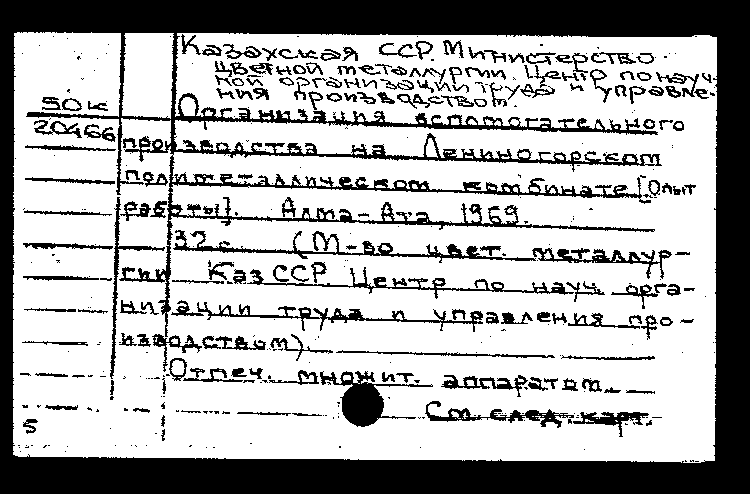 Казахская ССР. Министерство
цветной металлургии. Центр по науч-
ной организации труда и управле-
ния производством.
50к
Организация вспомогательного
20466
производства на Лениногорском
полиметаллическом комбинате [Опыт
работы]. Алма-Ата, 1969.
32 с. (М-во цвет. металлур-
гии КазССР. Центр по науч. орга-
низации труда и управления про-
изводством).
Отпеч. множит. аппаратом.
См. след. карт.
5